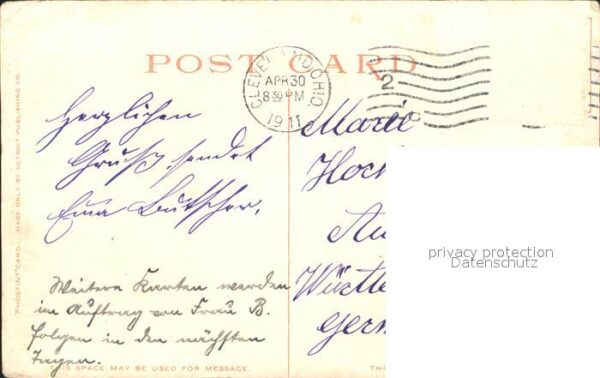 POST CARD
CLEVELAND, OHIO
APR 30
8 30 PM
1911
2
Herzlichen
Gruß, sendet
Ema Butscher.
Weitere Karten werden
im Auftrag von Frau B.
folgen in den nächsten
Tagen.
Marie
Hoch
Au
Württe
Germ
privacy protection
Datenschutz
"PHOSTINT" CARD MADE ONLY BY DETROIT PUBLISHING CO.
THIS SPACE MAY BE USED FOR MESSAGE.
THI